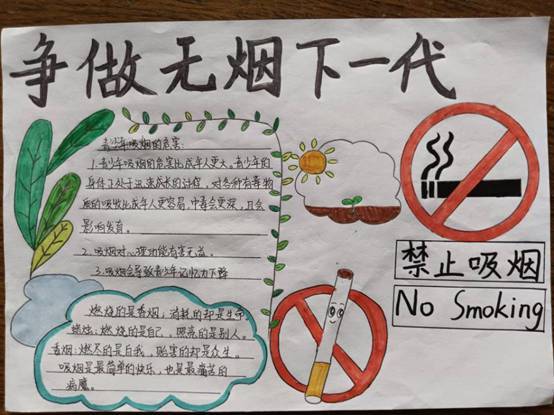 争做无烟下一代
青少年吸烟的危害:
1.青少年吸烟的危害比成年人更大,青少年的
身体正处于迅速成长的过程,对各种有毒物
质的吸收比成年人更容易,中毒会更深,且会
影响发育。
2.吸烟对心理功能有害无益。
3.吸烟会导致青少年记忆力下降
燃烧的是香烟,消耗的却是生命
蜡烛:燃烧的是自己,照亮的是别人。
香烟:燃尽的是自我,贻害的却是众生。
吸烟是最简单的快乐,也是最痛苦的
病魔。
禁止吸烟
No Smoking